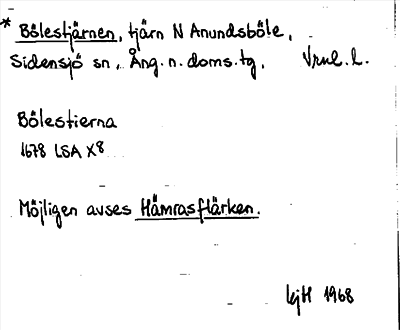 * Bölestjärnen, tjärn N Anundsböle,
Sidensjö sn, Ång. n. doms. tg, Vrul. l.
Bölestierna
1678 LSA X8
Möjligen avses Hämrasflärken.
LjH 1968